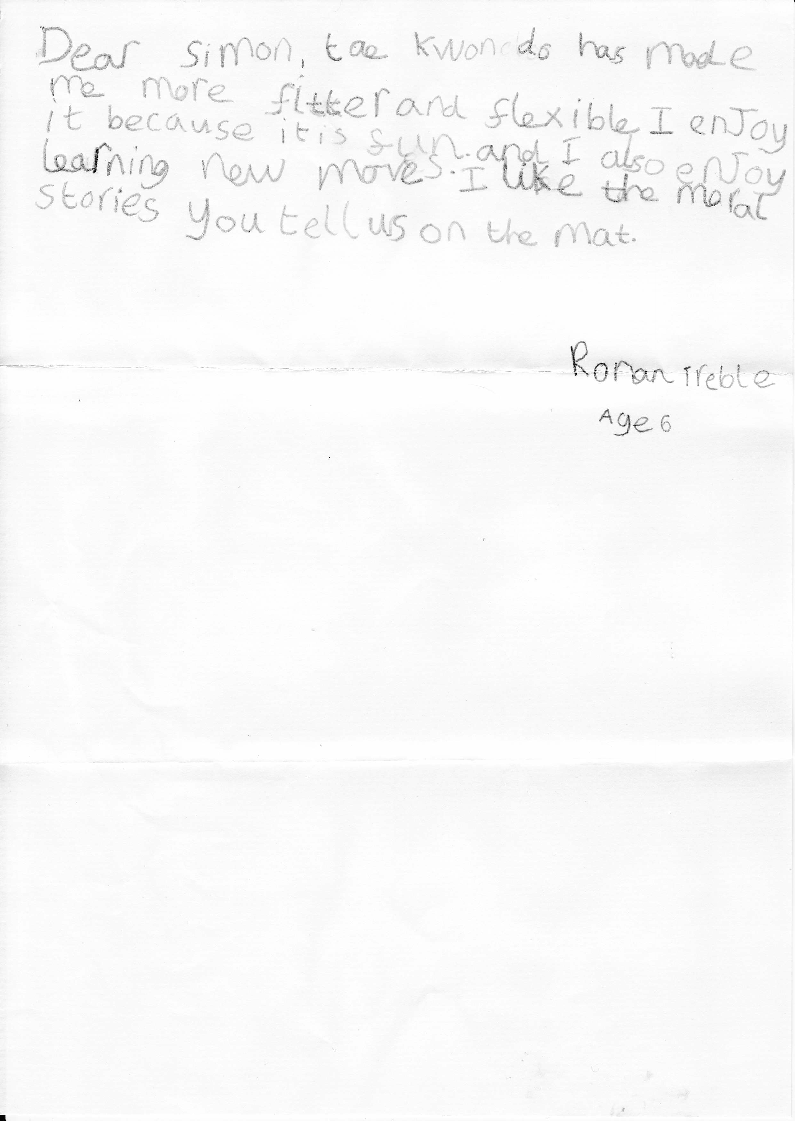 Dear Simon, tae Kwon do has made
me more fitter and flexible I enJoy
it because it is fun. and I also enJoy
learning new moves. I like the moral
stories you tell us on the mat.
Ronan Treble
Age 6